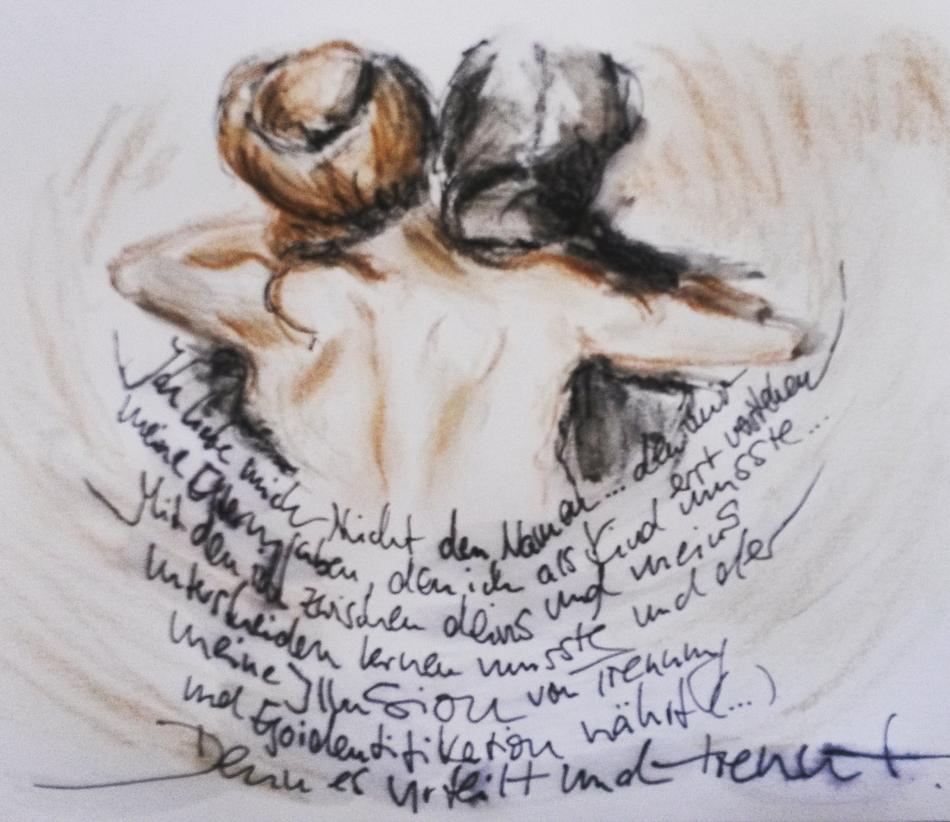 Ich liebe mich Nicht den Namen... den mir
meine Eltern gaben, den ich als Kind erst verstehen
musste...
Mit dem ich zwischen deins und meins
unterscheiden lernen musste und der
meine Illusion von Trennung
und Egoidentifikation nährt (...)
Denn es urteilt und trennt.